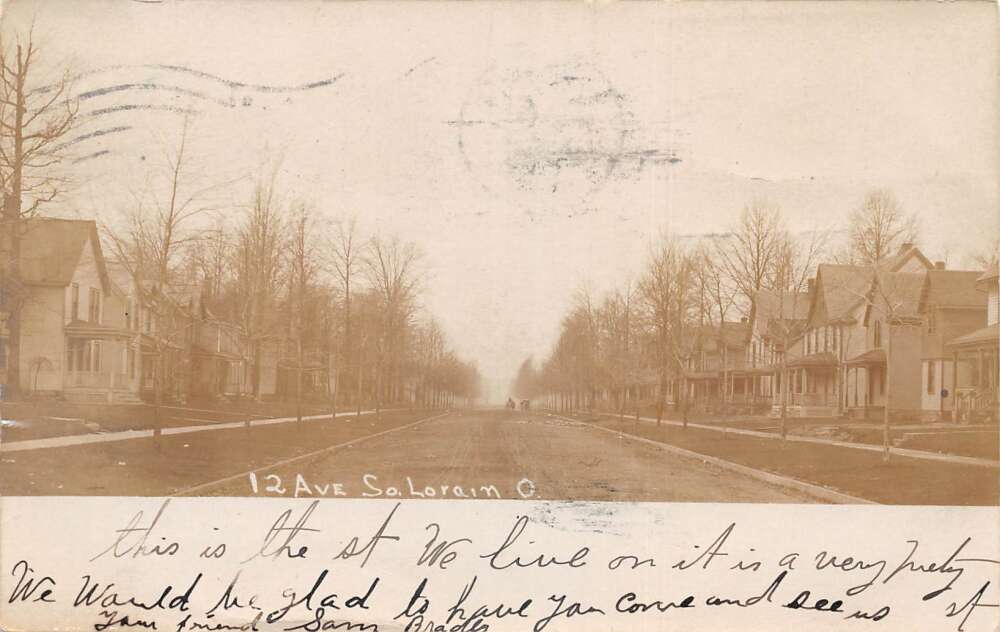 12 AVE So. Lorain O.
this is the st We live on it is a very prety
We Would be glad to have you come and see us st
Your friend Sam